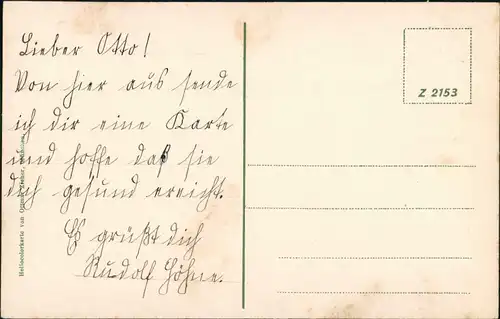 Lieber Otto!
Von hier aus sende
ich dir eine Karte
und hoffe daß sie
dich gesund erreicht.
Es grüßt dich
Rudolf Höhne.
Z 2153